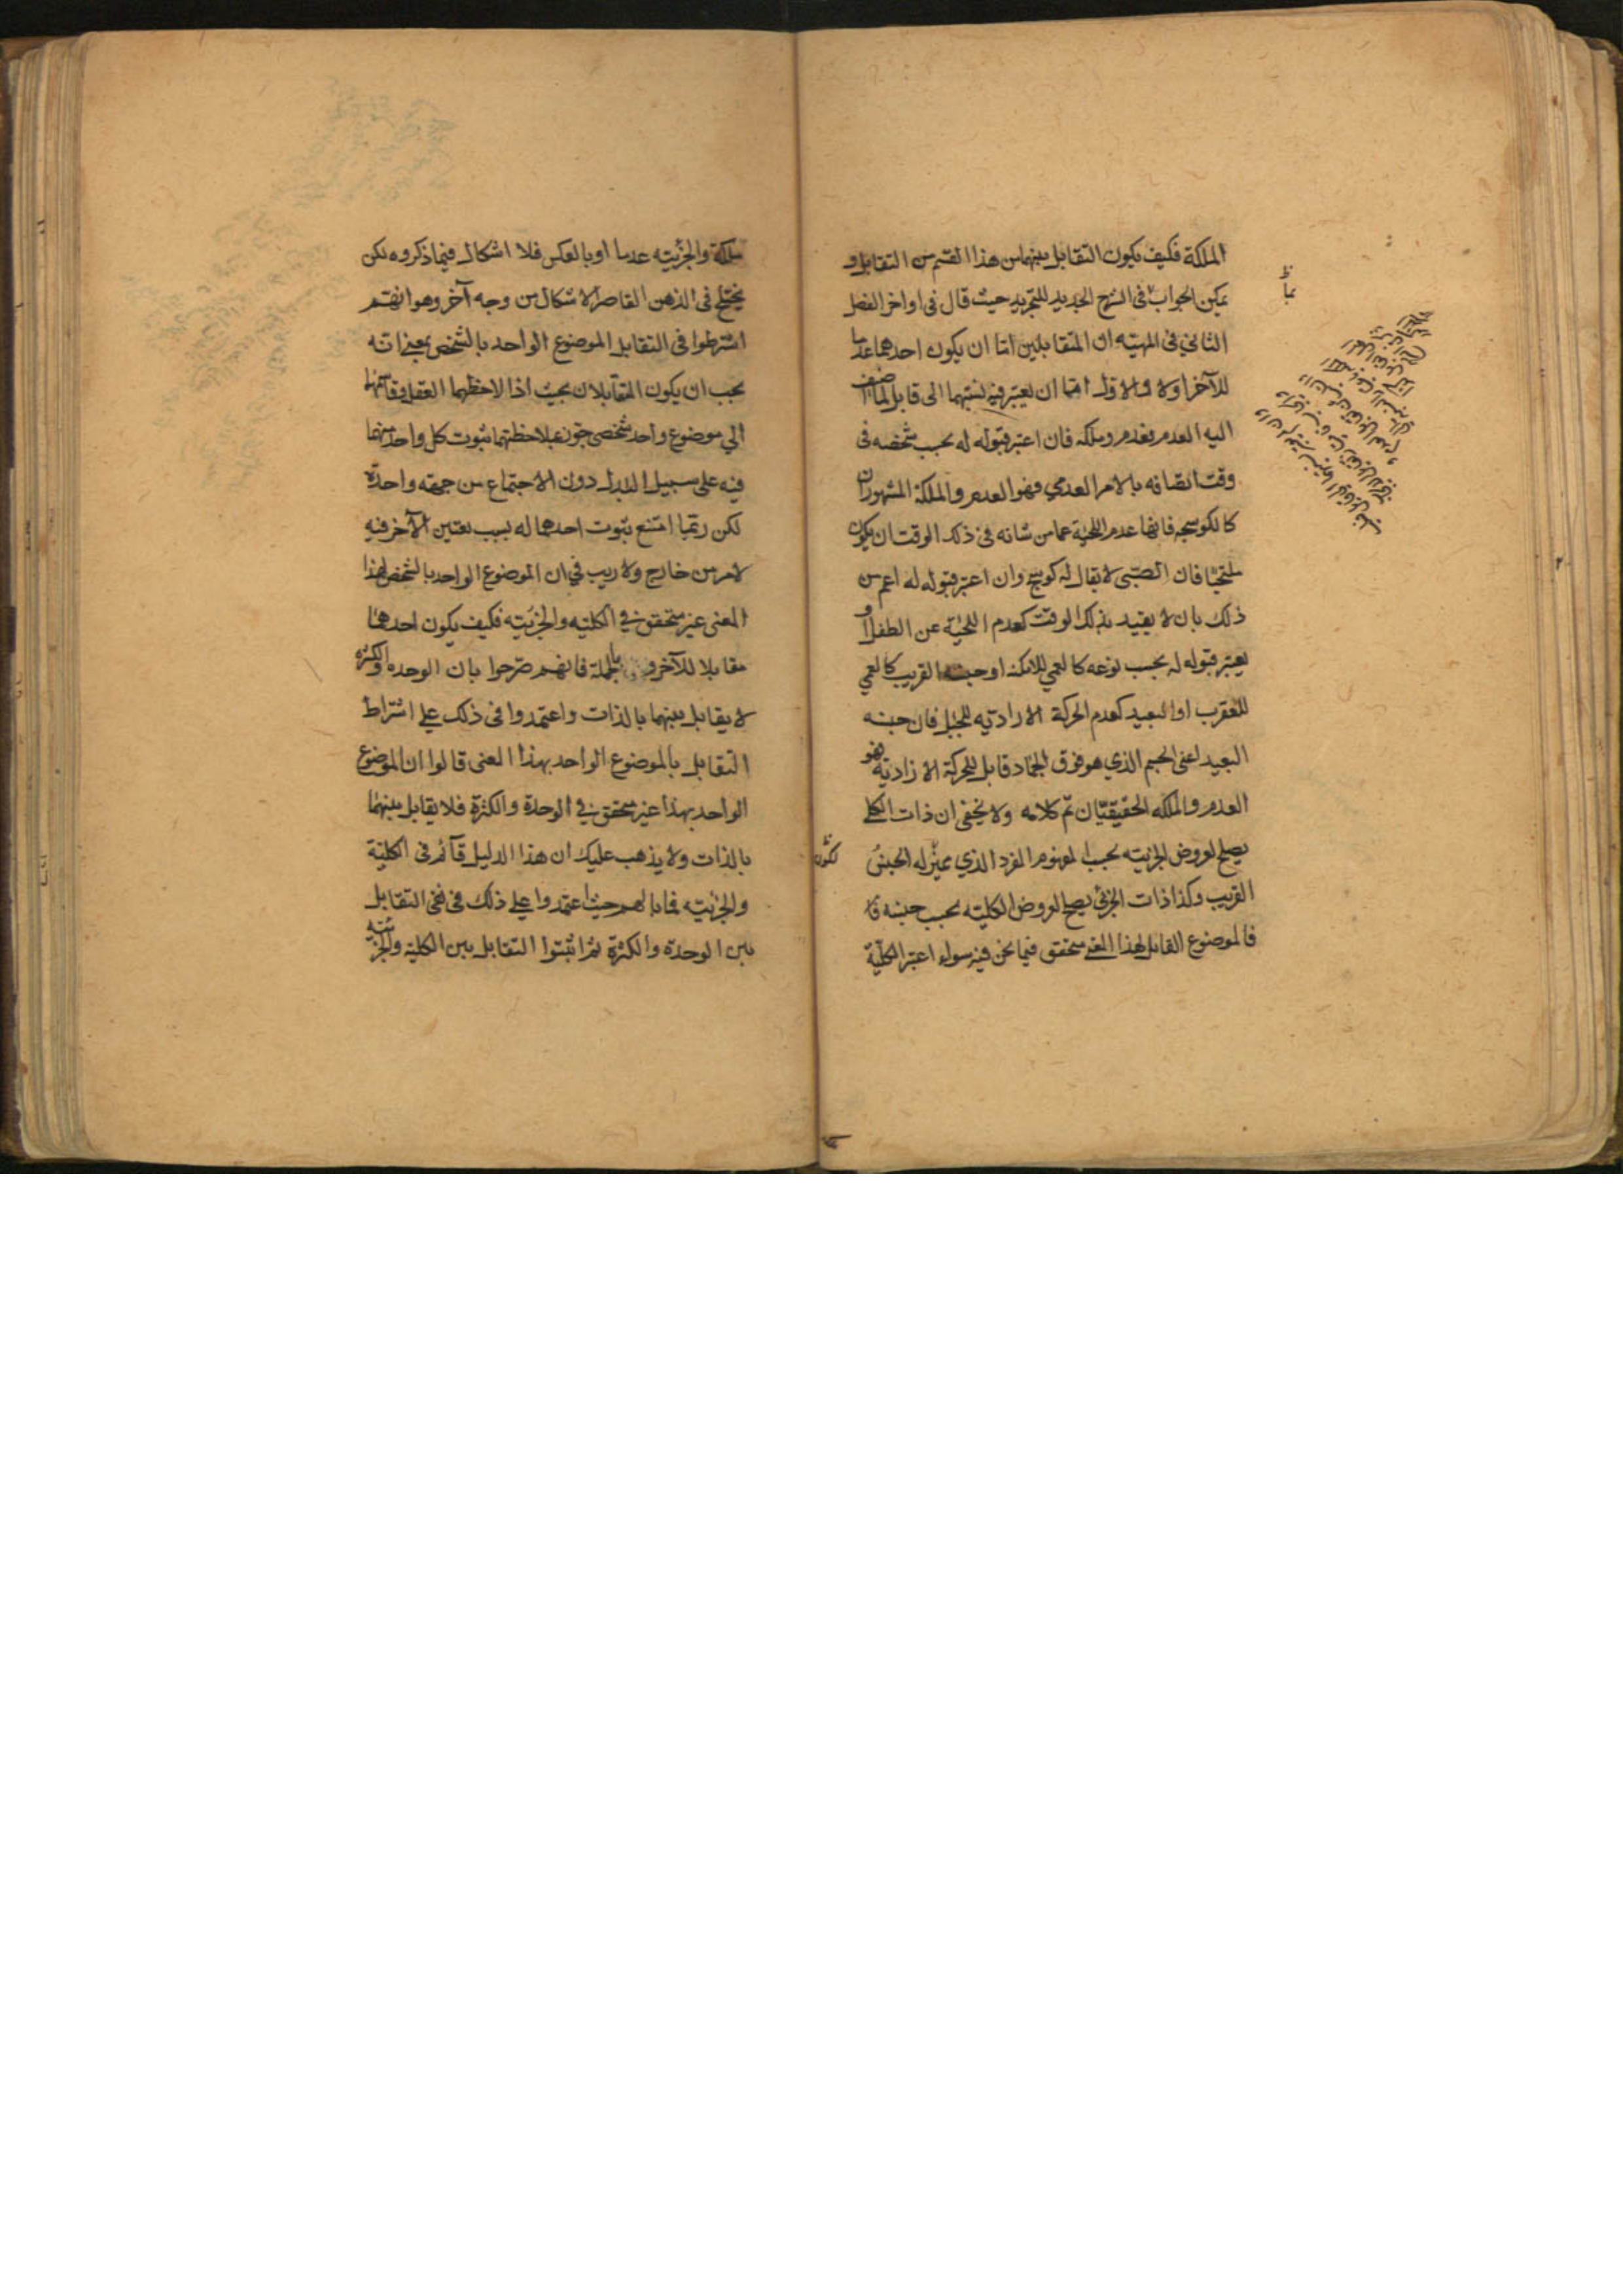 الملكة فكيف يكون التقابل بينهما من هذا القسم من التقابل و
يمكن الجواب بما في الشرح الجديد للتجريد حيث قال في اواخر الفصل
الثاني في المهيّة ان المتقابلين امّا ان يكون احدهما عدما
للآخر او لا والاول امّا ان يعتبر فيه نسبتهما الى قابل لما اضيف
اليه العدم فعدم وملكه فان اعتبر قبوله له بحسب شخصه في
وقت اتصافه بالامر العدمي فهو العدم والملكة المشهوران
كالكوسجه فانها عدم اللحية عما من شانه في ذلك الوقت ان يكون
ملتحيا فان الصبّى لا يقال له كوسج وان اعتبر قبوله له اعم من
ذلك بان لا يقيد بذلك الوقت كعدم اللحية عن الطفل او
يعتبر قبوله له بحسب نوعه كالعمي للاكمه او جنسه القريب كالعمي
للعقرب او البعيد كعدم الحركة الارادّيه للجبل فان جنسه
البعيد اعني الجسم الذي هو فوق الجماد قابل للحركة الارادية فهو
العدم والملكه الحقيقيّان تم كلامه ولا يخفى ان ذات الكلي
يصلح لعروض الجزئيته بحسب المفهوم المفرد الذي بمنزله الجنس
القريب وكذا ذات الجزئي يصلح لعروض الكليته بحسب جنسه
فالموضوع القابل لهذا المعنى متحقق فيما نحن فيه سواء اعتبر الكليّة
ملكة والجزئيته عدما او بالعكس فلا اشكال فيما ذكروه لكن
يختلج في الذهن القاصر الاشكال من وجه آخر وهو انهم
اشترطوا في التقابل الموضوع الواحد بالشخص بمعنى انه
يجب ان يكون المتقابلان بحيث اذا لاحظهما العقل وقاسهما
الي موضوع واحد شخصي جوز بملاحظتهما ثبوت كل واحد منهما
فيه على سبيل البدل دون الاجتماع من جهته واحدة
لكن ربّما امتنع ثبوت احدهما له بسبب تعين الآخر فيه
لامر من خارج ولا ريب في ان الموضوع الواحد بالشخص لهذا
المعنى غير متحقق في الكليّه والجزئيته فكيف يكون احدهما
مقابلا للآخر وبالجملة فانهم صرّحوا بان الوحده والكثره
لا يقابل بينهما بالذات واعتمدوا في ذلك علي اشتراط
التقابل بالموضوع الواحد بهذا المعنى قالوا ان الموضوع
الواحد بهذا غير متحقق في الوحدة والكثرة فلا يقابل بينهما
بالذات ولا يذهب عليك ان هذا الدليل قآئم في الكليّة
والجزئيته فما بالهم حيث اعتمدوا علي ذلك في نفي التقابل
بين الوحدة والكثرة ثم اثبتوا التقابل بين الكلية والجزئيه